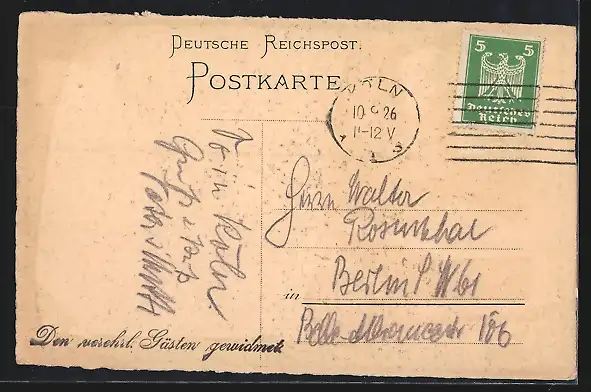 DEUTSCHE REICHSPOST.
POSTKARTE
KÖLN
10 26
11-12 V
5 5
Deutsches
Reich
in Köln
Gruß
Herrn Walter
Rosenthal
Berlin S W61
in
Belle-Alliancestr 106
Den verehrl. Gästen gewidmet.